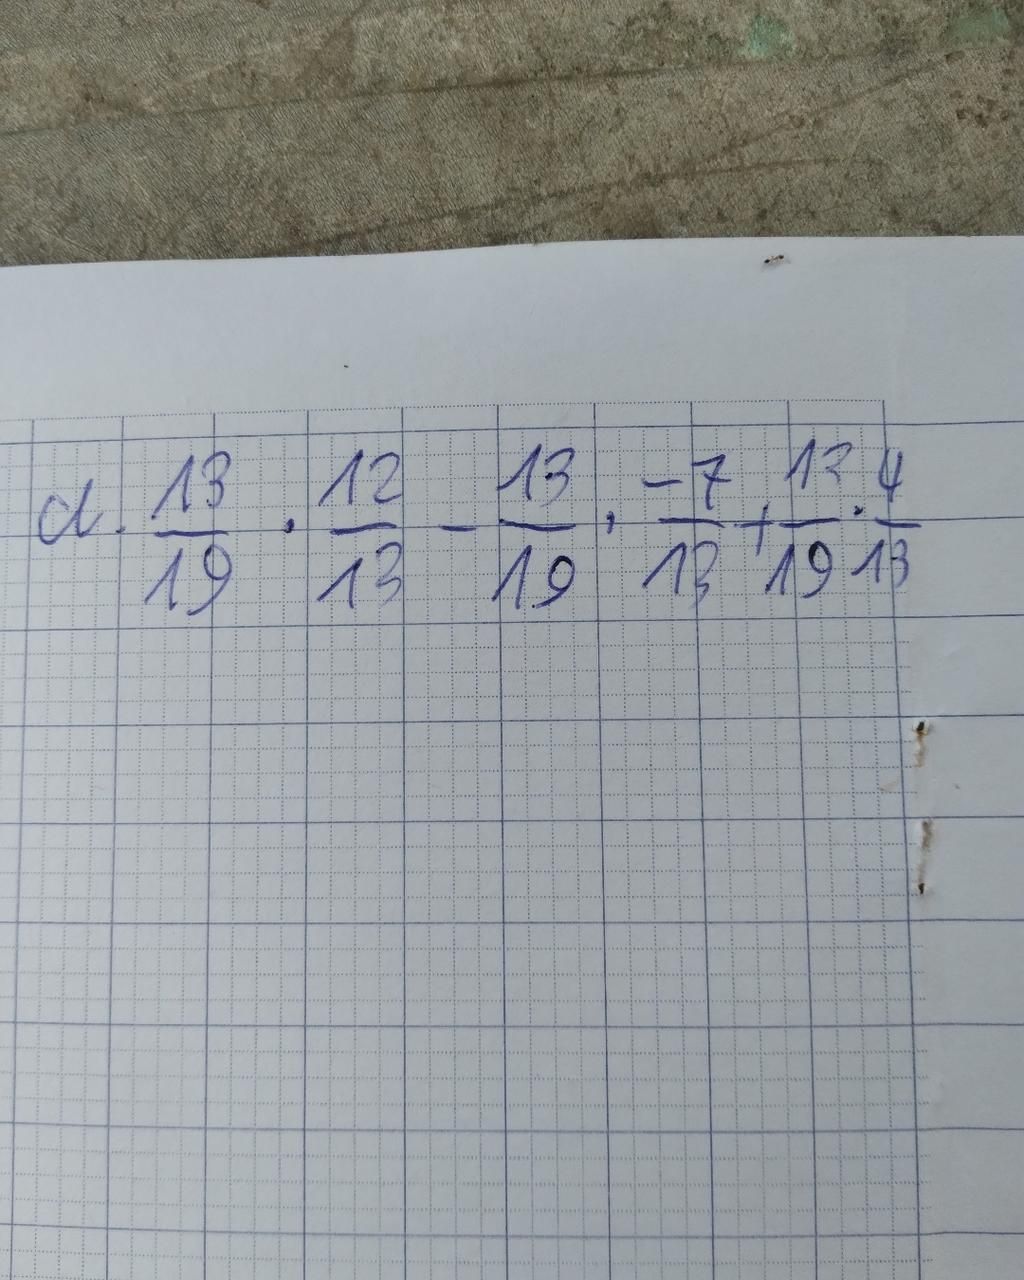 d. 13/19 . 12/13 - 13/19 . -7/13 + 12/19 . 4/13